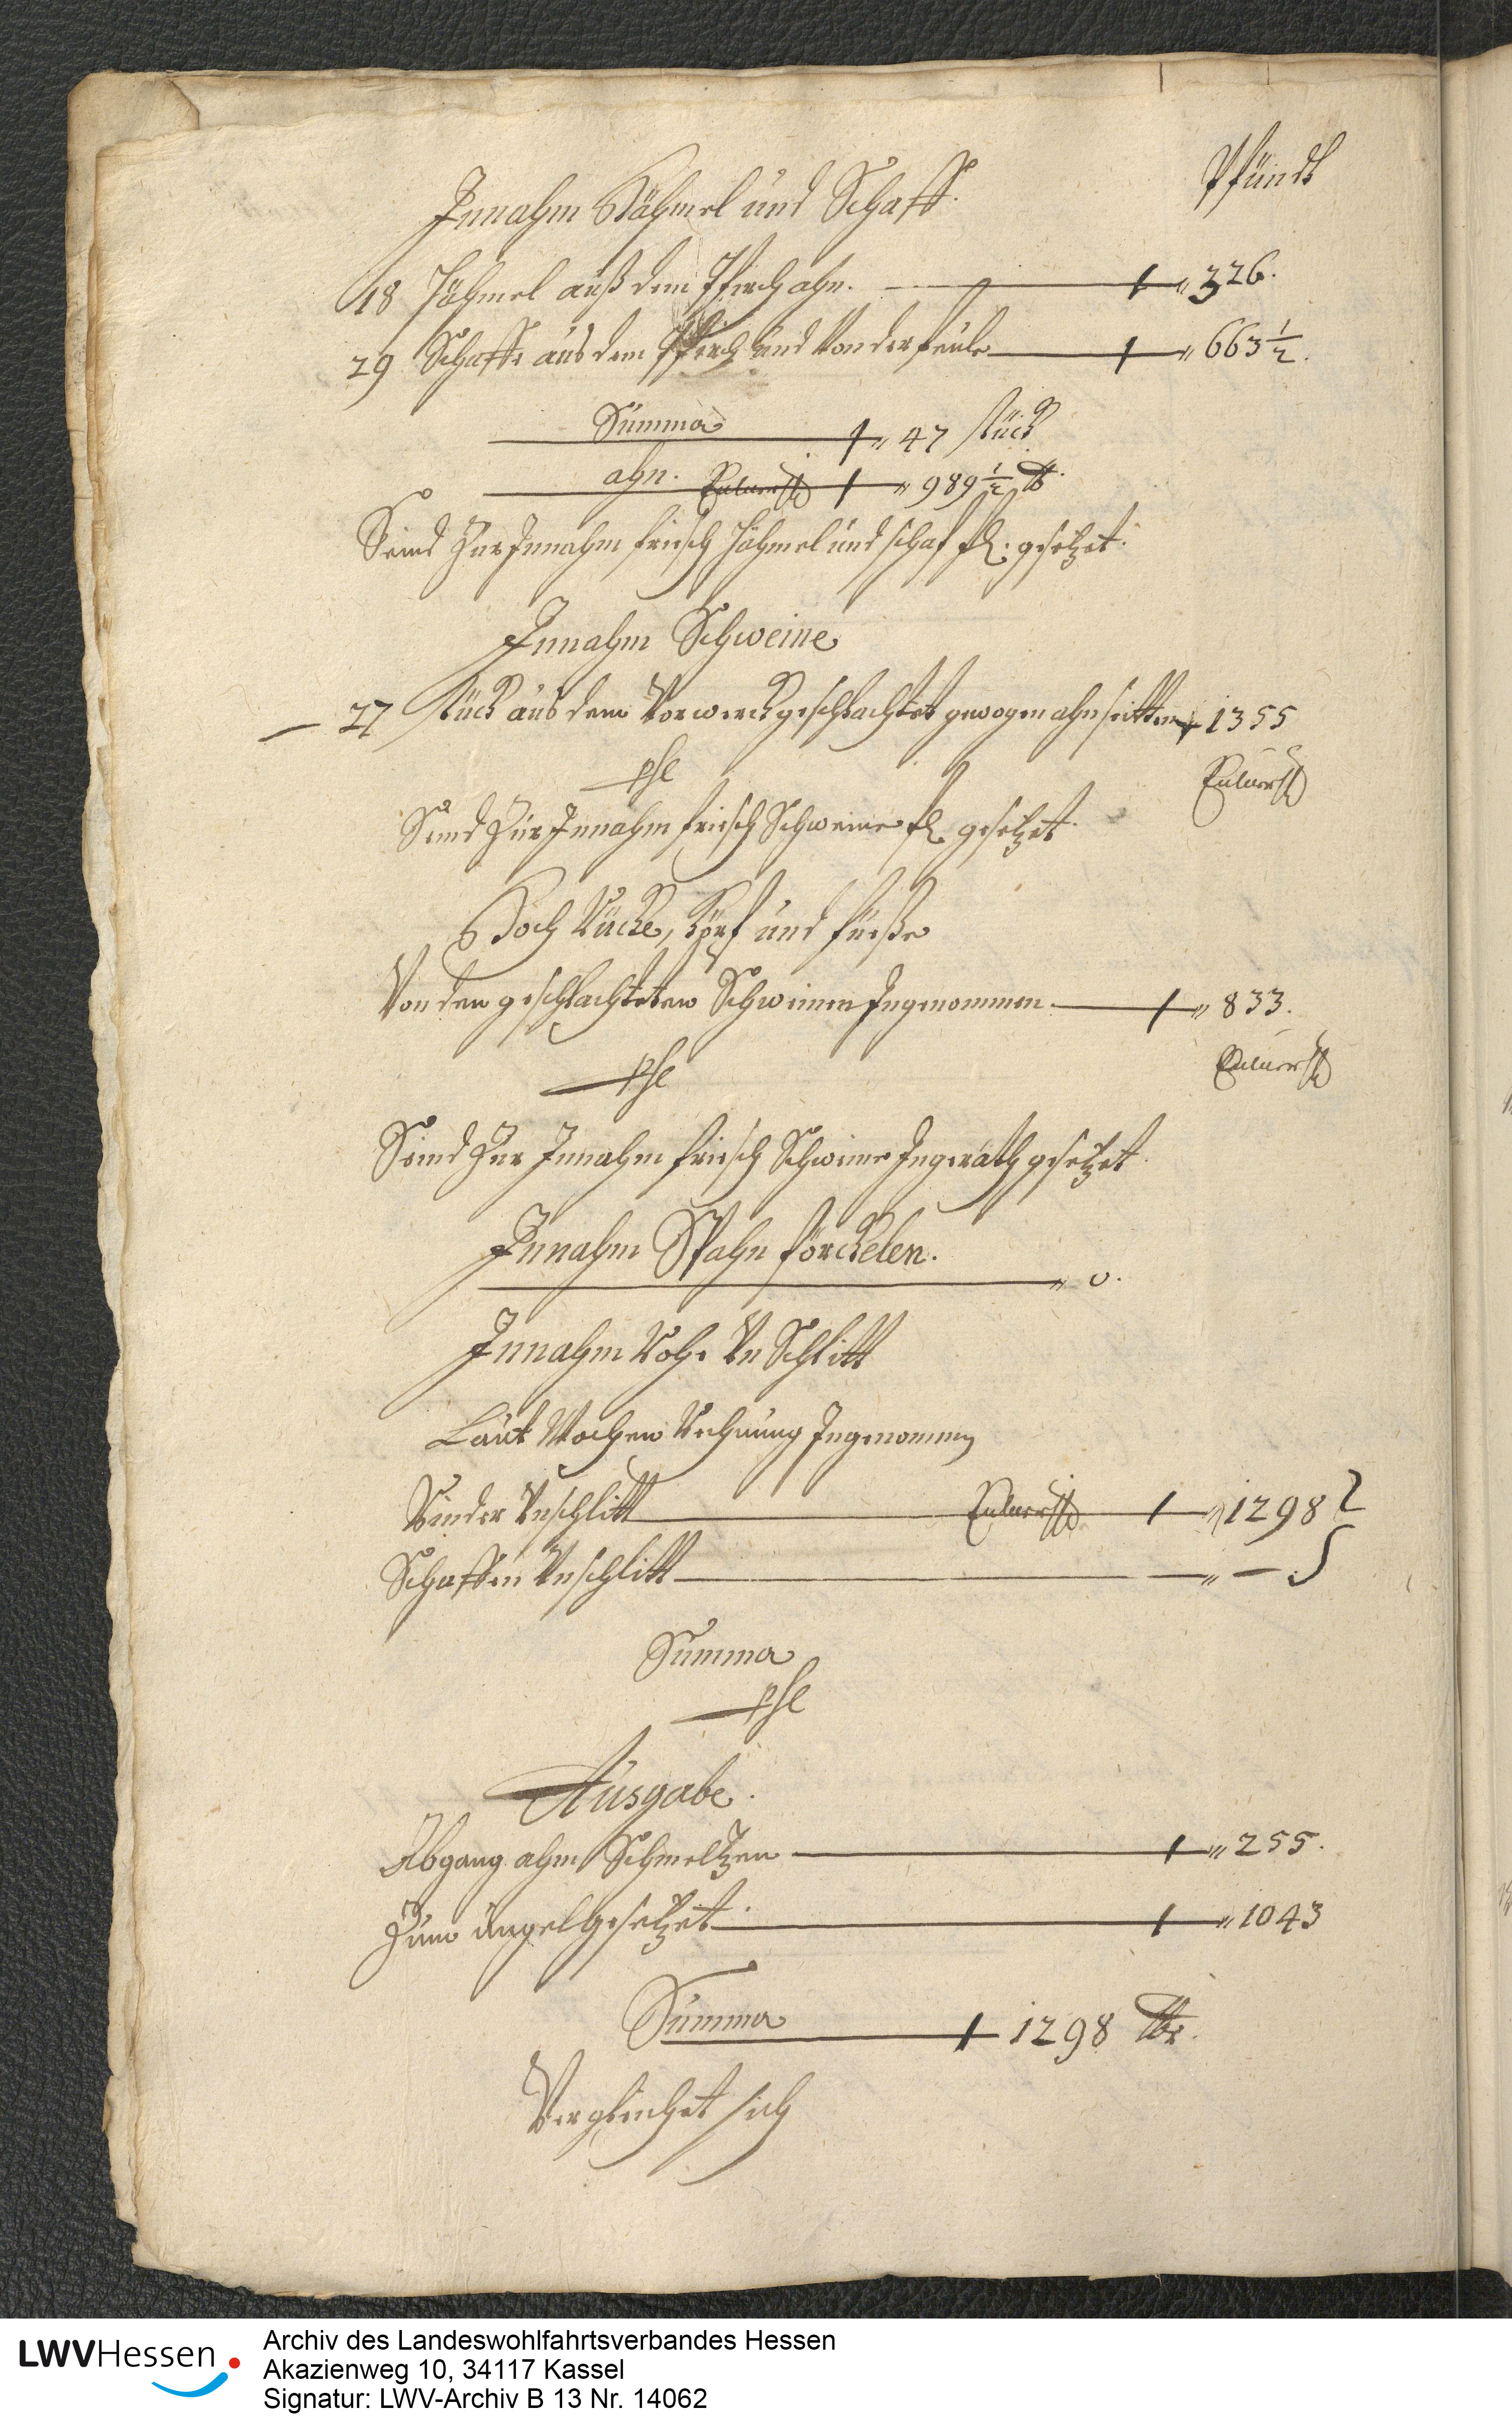 Pfündt
Innahm Hähmel und Schaff.
18 Hähmel auß dem Pferch ahn. " 326.
29 Schaffe aus dem Pferch und Von der Heüle " 663 1/2.
Summa " 47 stück
ahn. " 989 1/2 lb.
Seind Zur Innahm frisch Hähmel und schaf fl. gesetzet.
Innahm Schweine
27 stück aus dem Vorwerck geschlachtet gewogen ahn seitten 1355
pse
Seind Zur Innahm frisch Schweine fl. gesetzet.
Noch Rücke, Köpf und füeße
Von den geschlachteten Schweinen Ingenommen " 833.
pse
Seind Zur Innahm frisch Schweine Ingeräth gesetzet.
Innahm Spahn förckelen.
" 0.
Innahm Rohe Vnschlitt
Laut Wochen Rechnung Ingenommen
Rinder Vnschlitt " 1298
Schaffen Vnschlitt " —
Summa
pse
Ausgabe.
Abgang ahm Schmeltzen " 255.
Zum üngel gesetzet " 1043
Summa 1298 lb.
Vergleichet sich
LWVHessen
Archiv des Landeswohlfahrtsverbandes Hessen
Akazienweg 10, 34117 Kassel
Signatur: LWV-Archiv B 13 Nr. 14062